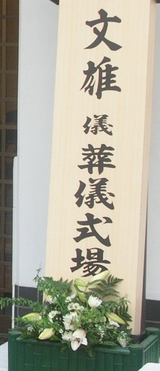 文雄儀葬儀式場